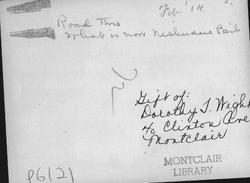 Feb '14
Road Thru
What is now Nishuane Park
Gift of:
Dorothy T. Wight
40 Clinton Ave
Montclair
MONTCLAIR
LIBRARY
P6121